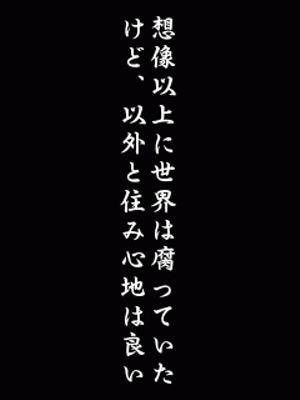 想像以上に世界は腐っていた
けど、以外と住み心地は良い